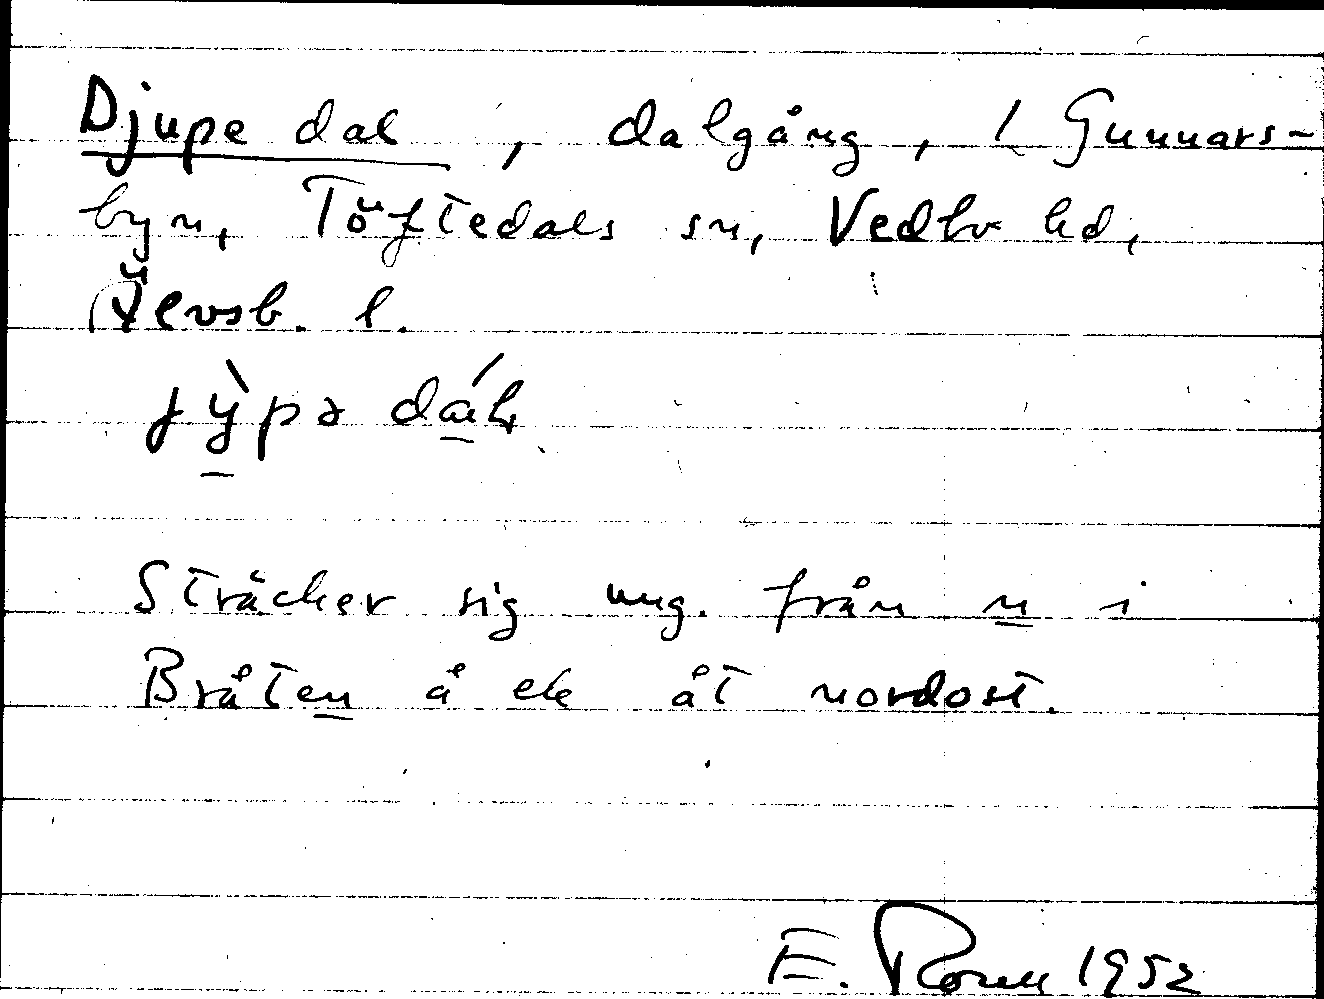 Djupe dal, dalgång, 1 Gunnars-
byn, Töftedals sn, Vedbo hd,
Älvsb. l.
Sträcker sig ung. från n i
Bråten å ek åt nordost.
E. 1952